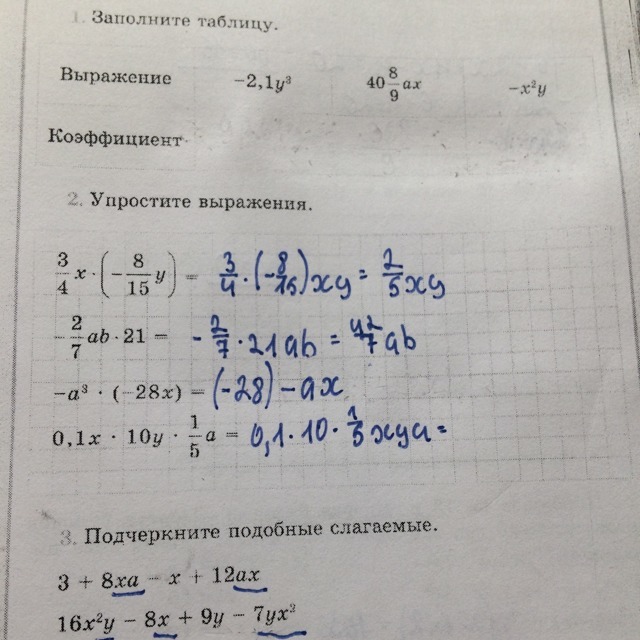 1. Заполните таблицу.
Выражение −2,1y³ 40 8/9 ax −x²y
Коэффициент
2. Упростите выражения.
3/4 x · (− 8/15 y) = 3/4 · (−8/15) xy = 2/5 xy
− 2/7 ab · 21 = − 2/7 · 21 ab = 42/7 ab
−a³ · (−28x) = (−28) − ax
0,1x · 10y · 1/5 a = 0,1 · 10 · 1/5 xya =
3. Подчеркните подобные слагаемые.
3 + 8xa − x + 12ax
16x²y − 8x + 9y − 7yx²